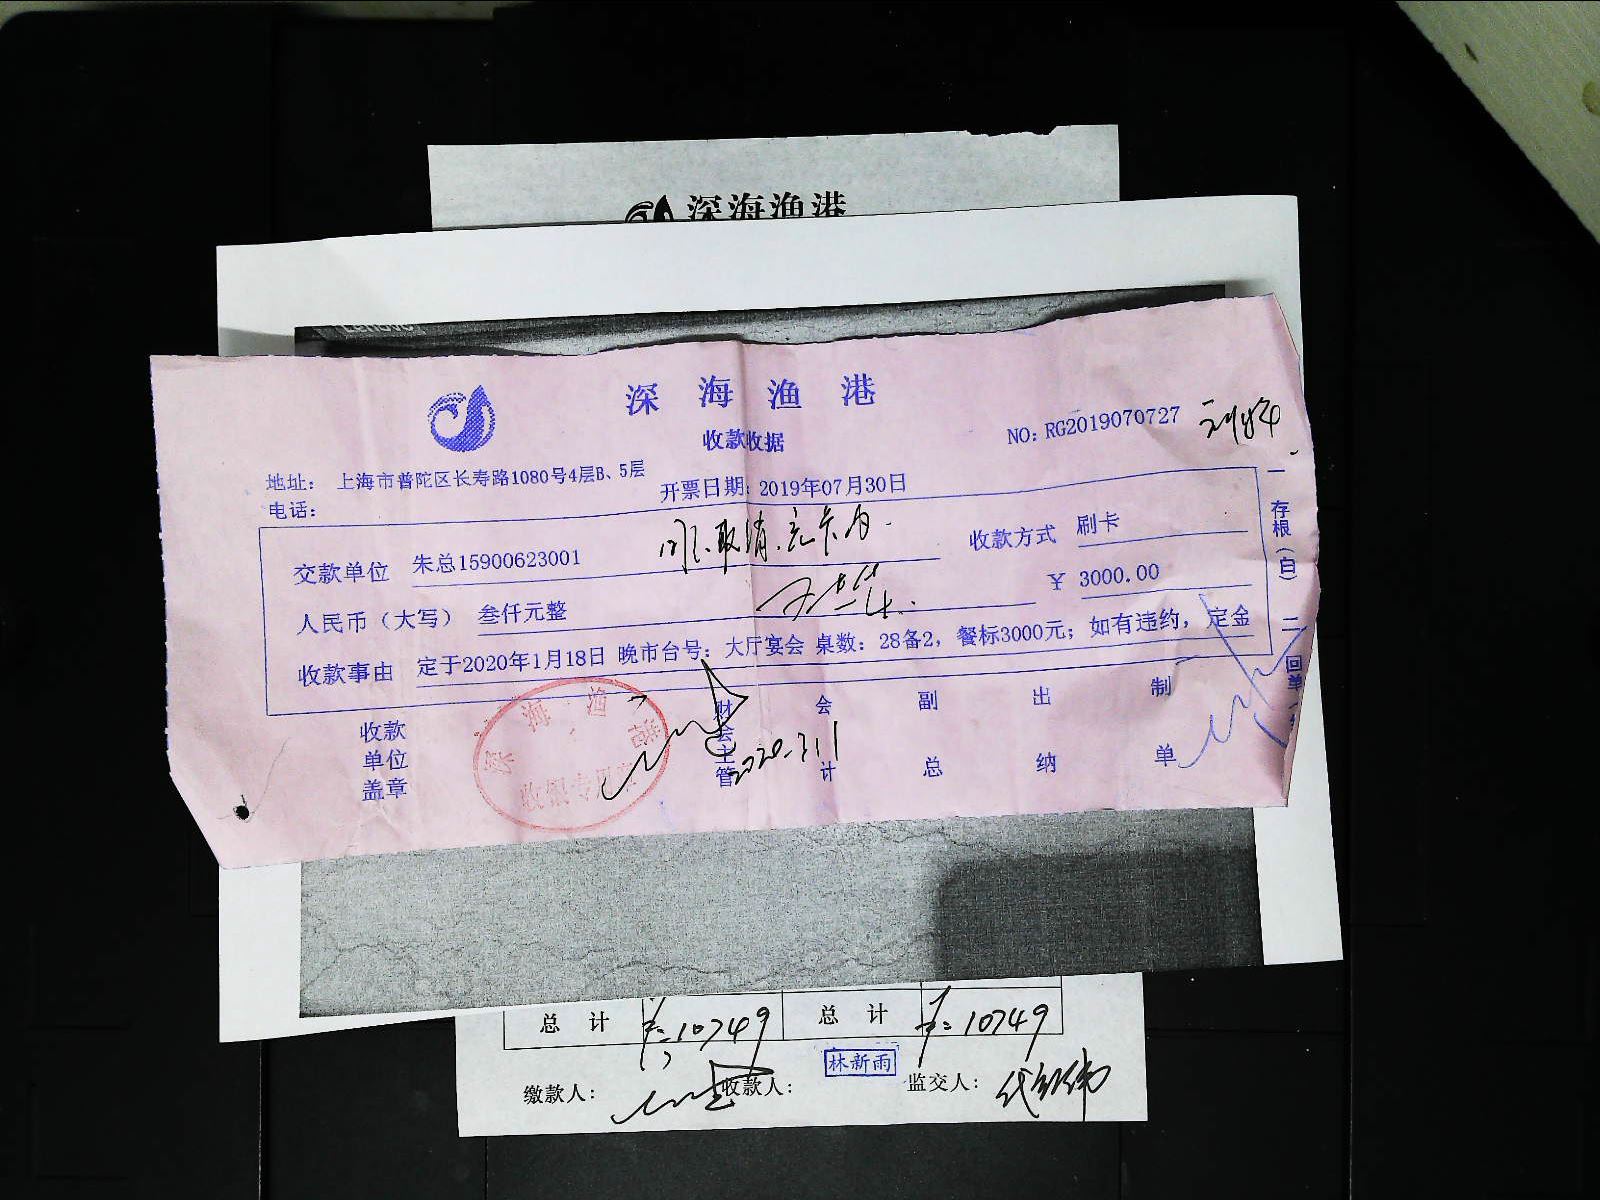 深海渔港
Lenovo
深海渔港
收款收据
NO: RG2019070727
地址: 上海市普陀区长寿路1080号4层B、5层
电话:
开票日期: 2019年07月30日
取消.充卡内.
交款单位 朱总15900623001
收款方式 刷卡
人民币（大写） 叁仟元整
￥ 3000.00
收款事由 定于2020年1月18日 晚市台号: 大厅宴会 桌数: 28备2, 餐标3000元; 如有违约, 定金
一 存根（白） 二 回单
收款单位盖章
深海渔港
收银专用章
财会主管
会计
副总
出纳
制单
2020.
总计 10749 总计 10749
缴款人: 收款人: 林新雨 监交人: